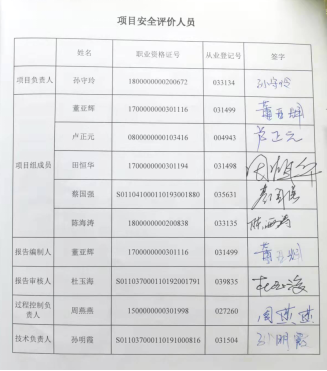 项目安全评价人员
姓名 职业资格证号 从业登记号 签字
项目负责人 孙守玲 1800000000200672 033134 孙守玲
项目组成员 董亚辉 1700000000301116 031499
卢正元 0800000000103416 004943 卢正元
田恒华 1700000000301194 031498
蔡国强 S011041000110193001880 035631 蔡国强
陈海涛 1800000000200838 033135 陈海涛
报告编制人 董亚辉 1700000000301116 031499
报告审核人 杜玉海 S011037000110192001791 039835 杜玉海
过程控制负责人 周燕燕 1500000000301998 027260 周燕燕
技术负责人 孙明霞 S011037000110191000816 031504 孙明霞